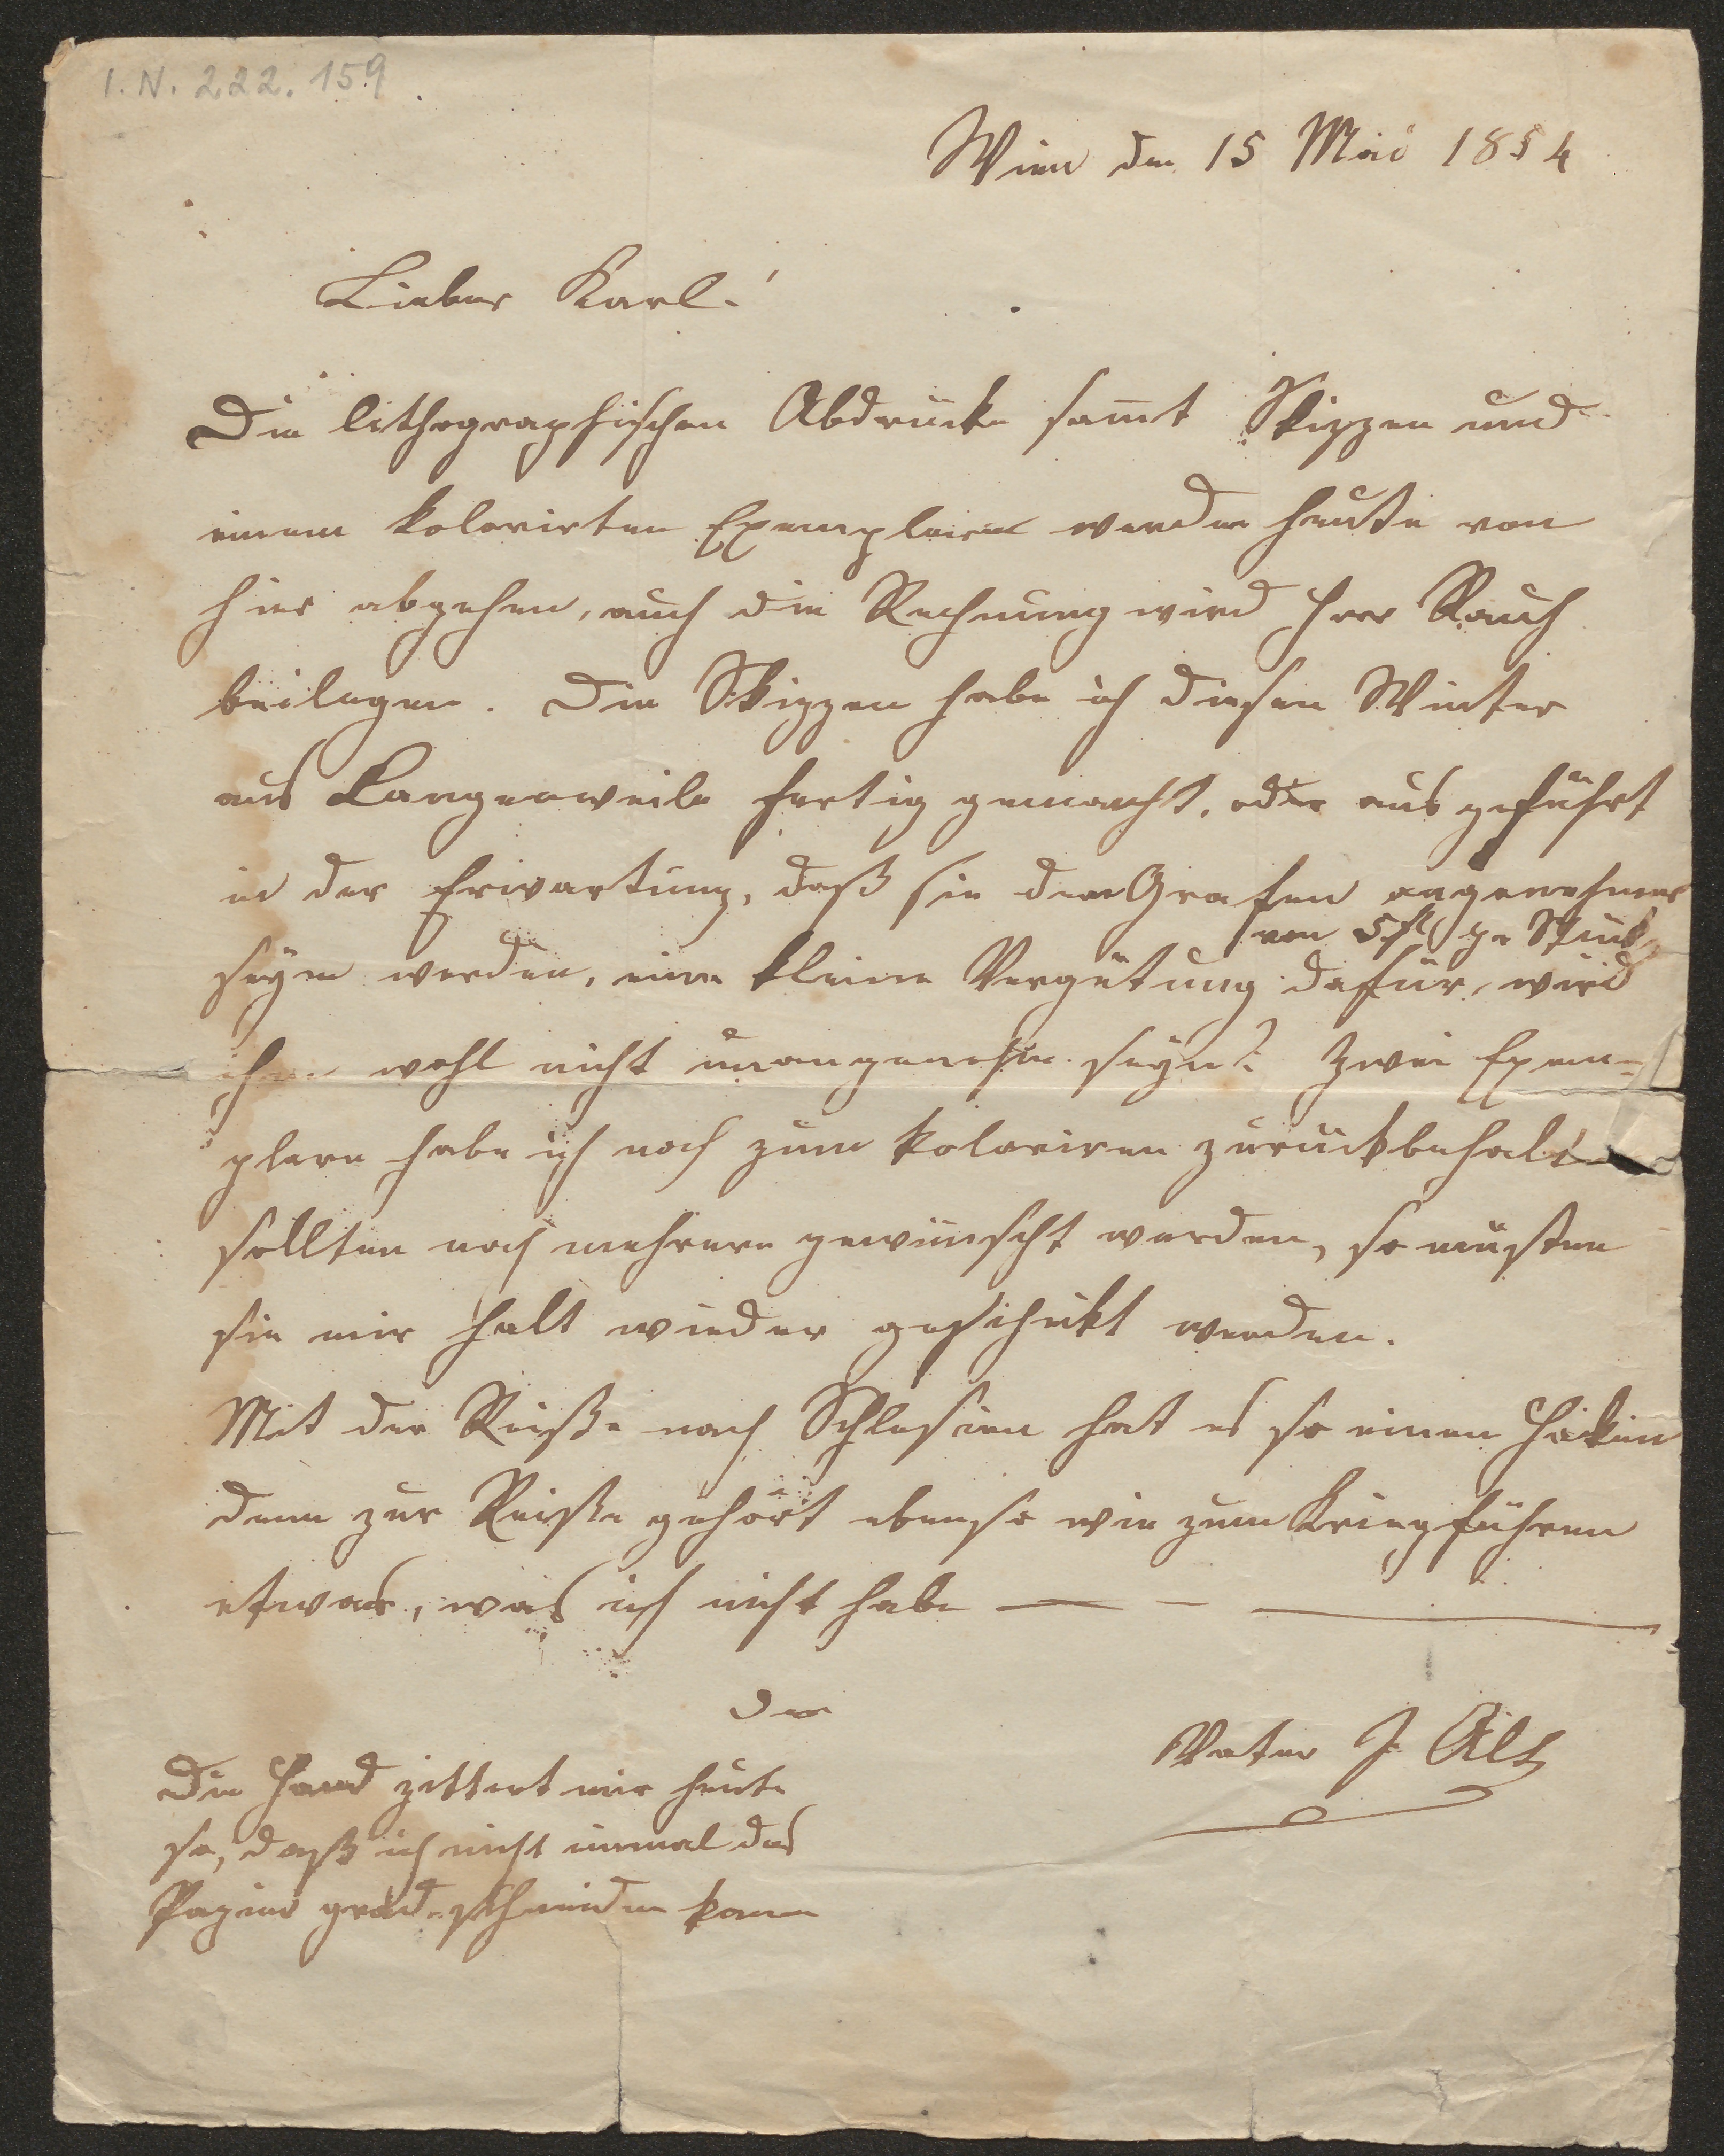 I.N. 222.159
Wien den 15 Mai 1854
Lieber Karl!
Die lithographischen Abdrücke sam̄t Skizzen und
einem kolorirten Exemplare werden heute von
hier abgehen, auch die Rechnung wird Herr Rauch
beilegen. Die Skizzen habe ich diesen Winter
aus Langerweile fertig gemacht, oder ausgeführt
in der Erwartung, daß sie dem Grafen angenehm
von 5 fl pr Stück
seyn werden, eine kleine Vergütung dafür, wird
ihm wohl nicht unangenehm seyn? Zwei Exem=
plare habe ich noch zum koloriren zurückbehalten
sollten noch mehrere gewünscht werden, so müsten
sie mir halt wieder geschickt werden.
Mit der Reiße nach Schlesien hat es so einen Hacken
denn zur Reiße gehört ebenso wie zum Kriegführen
etwas, was ich nicht habe — - —
Dein
Vater J. Alt
Die Hand zittert mir heute
so, daß ich nicht einmal das
Papier grad schneiden kann